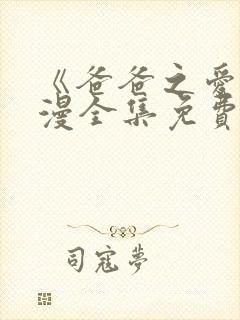 《爸爸之愛
漫全集免費
司寇夢